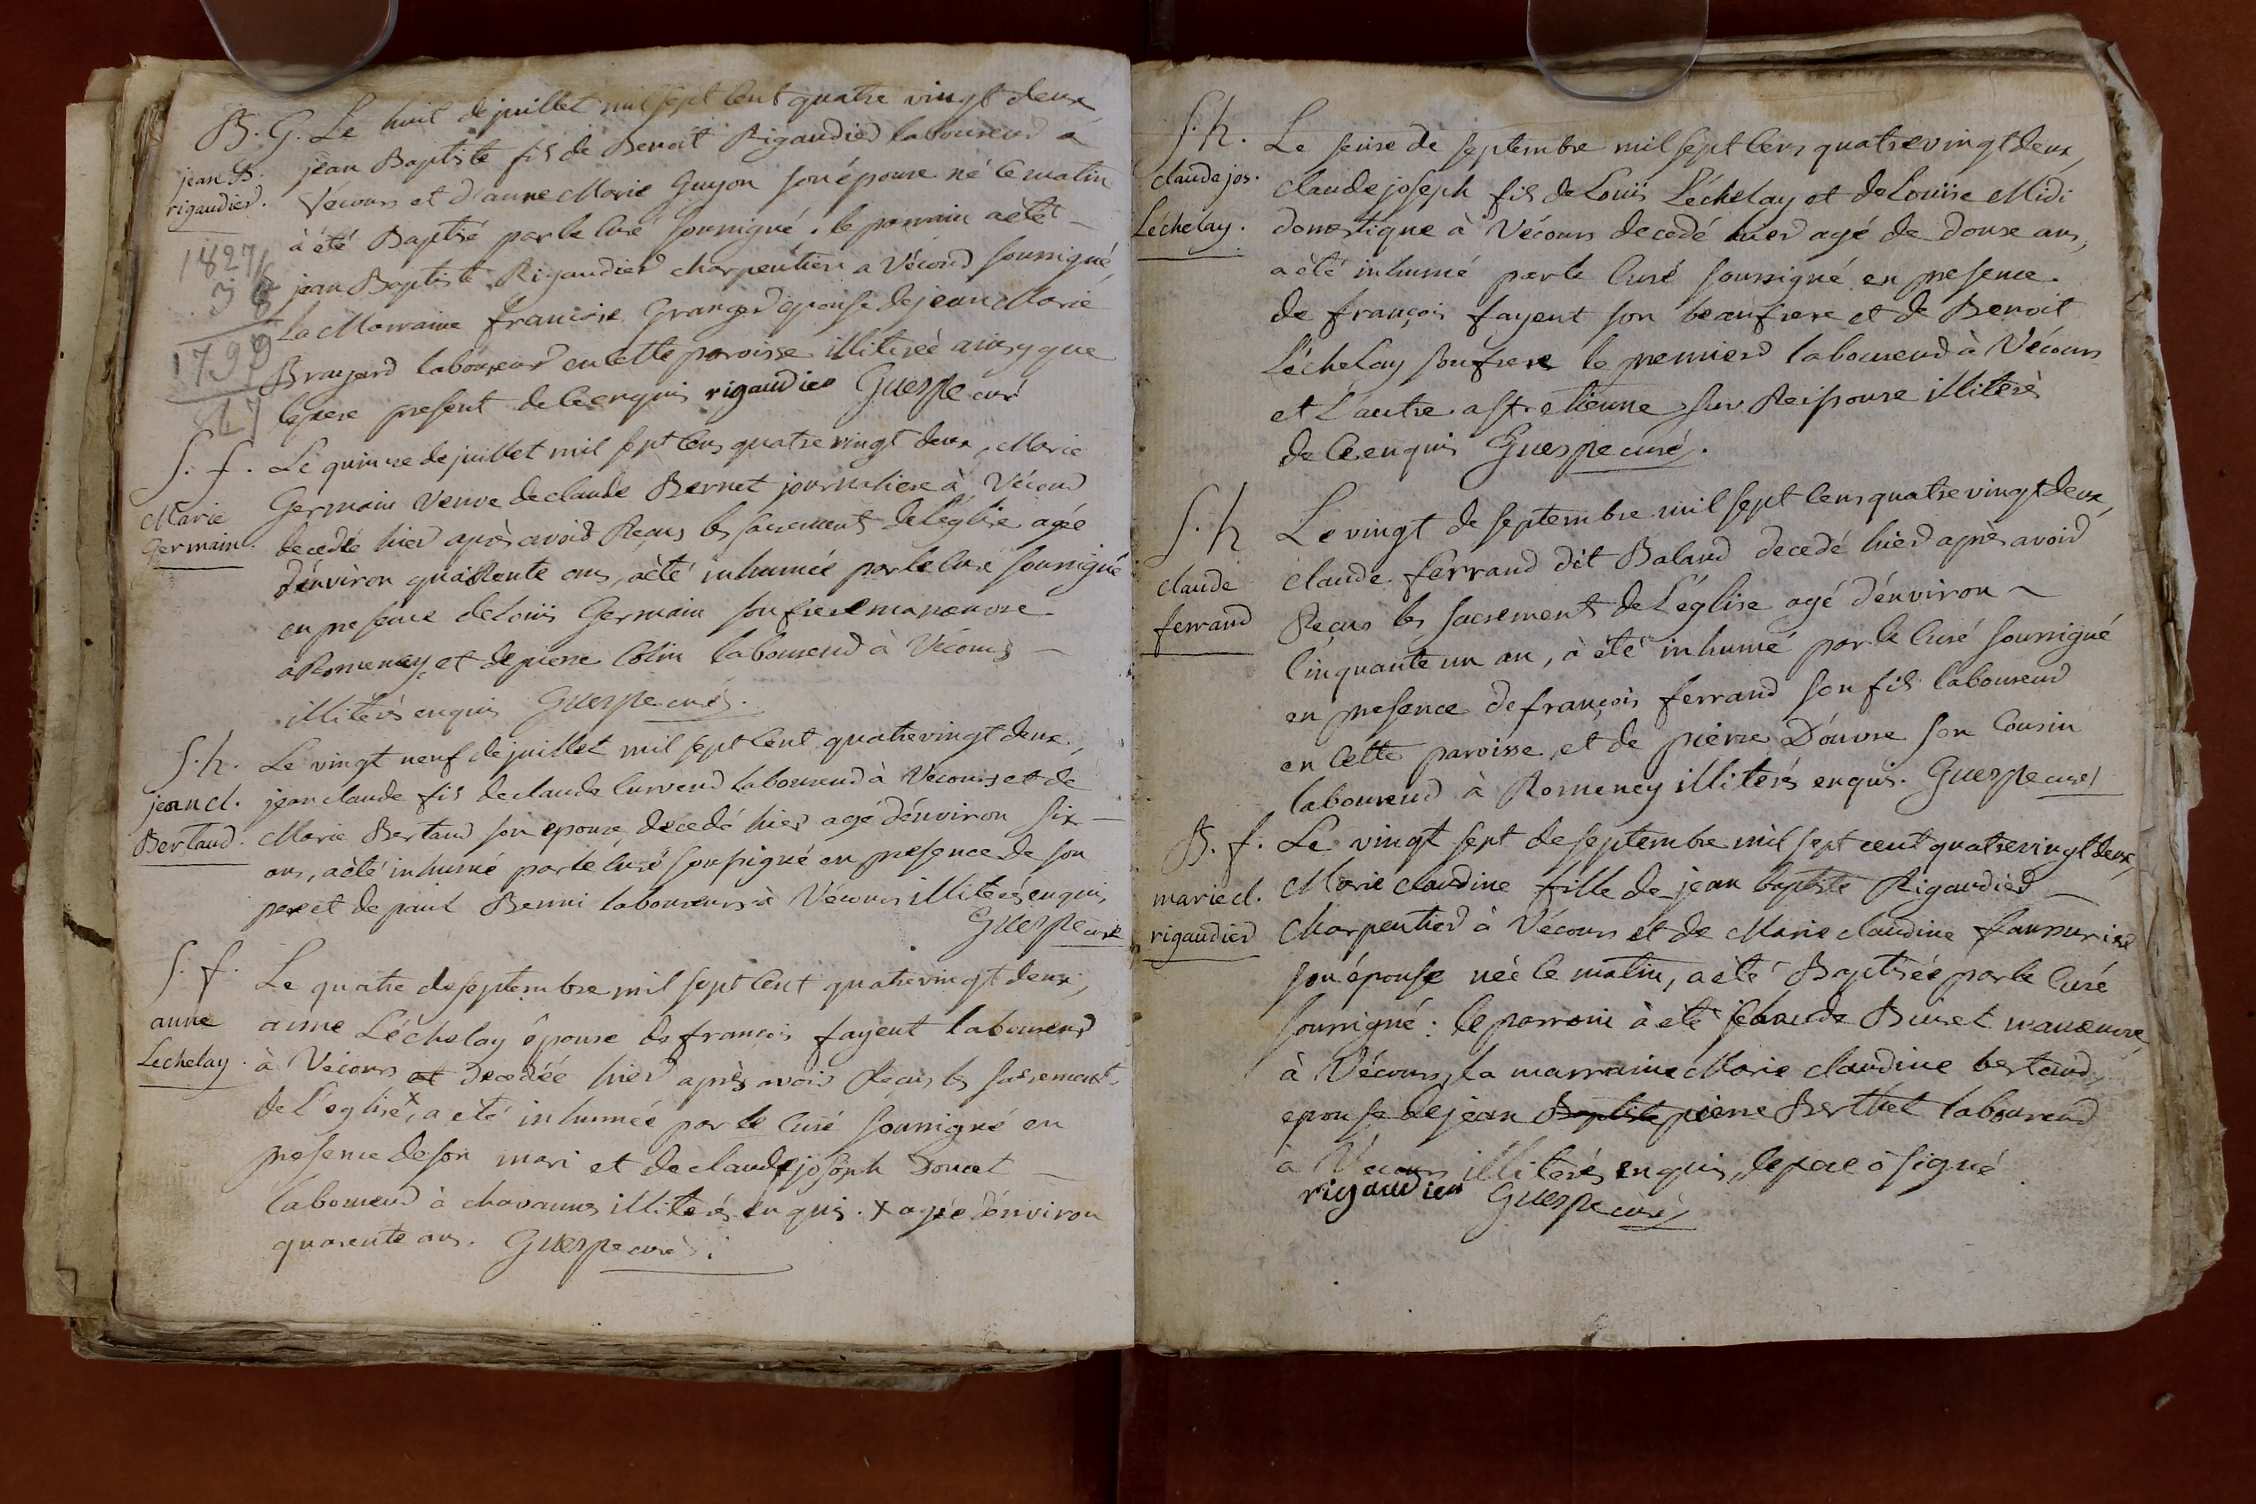 B. G. Le huit de juillet mil sept cent quatre vingt deux
jean B. jean Baptiste fils de Benoit Rigaudier laboureur a
rigaudier. Vécours et d'anne Marie Guyon son épouse né le matin
à été Baptisé par le curé soussigné. le parrain a été
jean Baptiste Rigaudier charpentier a Vécours soussigné,
La Marraine francoise Granger epouse de jean Marie
Brazard laboureur en cette paroisse illiterée ainsy que
le pere present de ce enquis rigaudier Guespe curé
1827
36
1799
27
S. f. Le quinze de juillet mil sept cens quatre vingt deux, Marie
Marie Germain veuve de claude Bernet journaliere à Vécours
Germain. decedée hier après avoir Reçus les sacrements de l'église agée
d'énviron quaRente ans, a été inhumée par le curé soussigné
en presence de Louis Germain son frere manoeuvre
à Romeney, et de pierre Colin laboureur à Vécours
illiterés enquis Guespe curé.
S. h. Le vingt neuf de juillet mil sept cent quatre vingt deux,
jean cl. jean claude fils de claude Curvend laboureur à Vecours et de
Bertaud. Marie Bertaud son epouse decedé hier agé d'énviron six
ans, a été inhumé par le curé soussigné en presence de son
pere et de paul Benni laboureurs à Vécours illiterés enquis
Guespe curé
S. f. Le quatre de septembre mil sept cent quatre vingt deux,
anne anne Léchelay épouse de françois fayent laboureur
Lechelay. à Vécours et decedée hier après avoir Reçus les sacrements
de l'eglise x, a été inhumée par le curé soussigné en
presence de son mari et de claude joseph Doucet
laboureur à chavannes illiterés enquis. x agée d'énviron
quarente ans. Guespe curé.
S. h. Le seise de septembre mil sept cens quatre vingt deux,
claude jos. claude joseph fils de Louis Léchelay et de Louise Midi
Léchelay. domestique à Vécours decedé hier agé de douse ans,
a été inhumé par le curé soussigné en presence
de françois fayent son beaufrere et de Benoit
Léchelay son frere le premier laboureur à Vécours
et L'autre a st etienne sur Reissouse illiterés
de ce enquis Guespe curé.
S. h Le vingt de septembre mil sept cens quatre vingt deux,
claude claude ferrand dit Baland decedé hier après avoir
ferrand Reçus les sacrements de L'église agé d'énviron
cinquante un an, à été inhumé par le curé soussigné
en presence de françois ferrand son fils laboureur
en cette paroisse, et de pierre Douvre son cousin
laboureur à Romeney illiterés enquis. Guespe curé
B. f. Le vingt sept de septembre mil sept cent quatre vingt deux,
marie cl. Marie claudine fille de jean baptiste Rigaudier
rigaudier Charpentier à Vécours et de Marie claudine
son épouse née le matin, a été Baptisée par le curé
soussigné : le parrain à été claude Buiret manoeuvre
à Vécours, la marraine Marie claudine bertaud,
epouse de jean Baptiste pierre Berthet laboureur
à Vécours illiterés enquis, le pere à signé
rigaudier Guespe curé